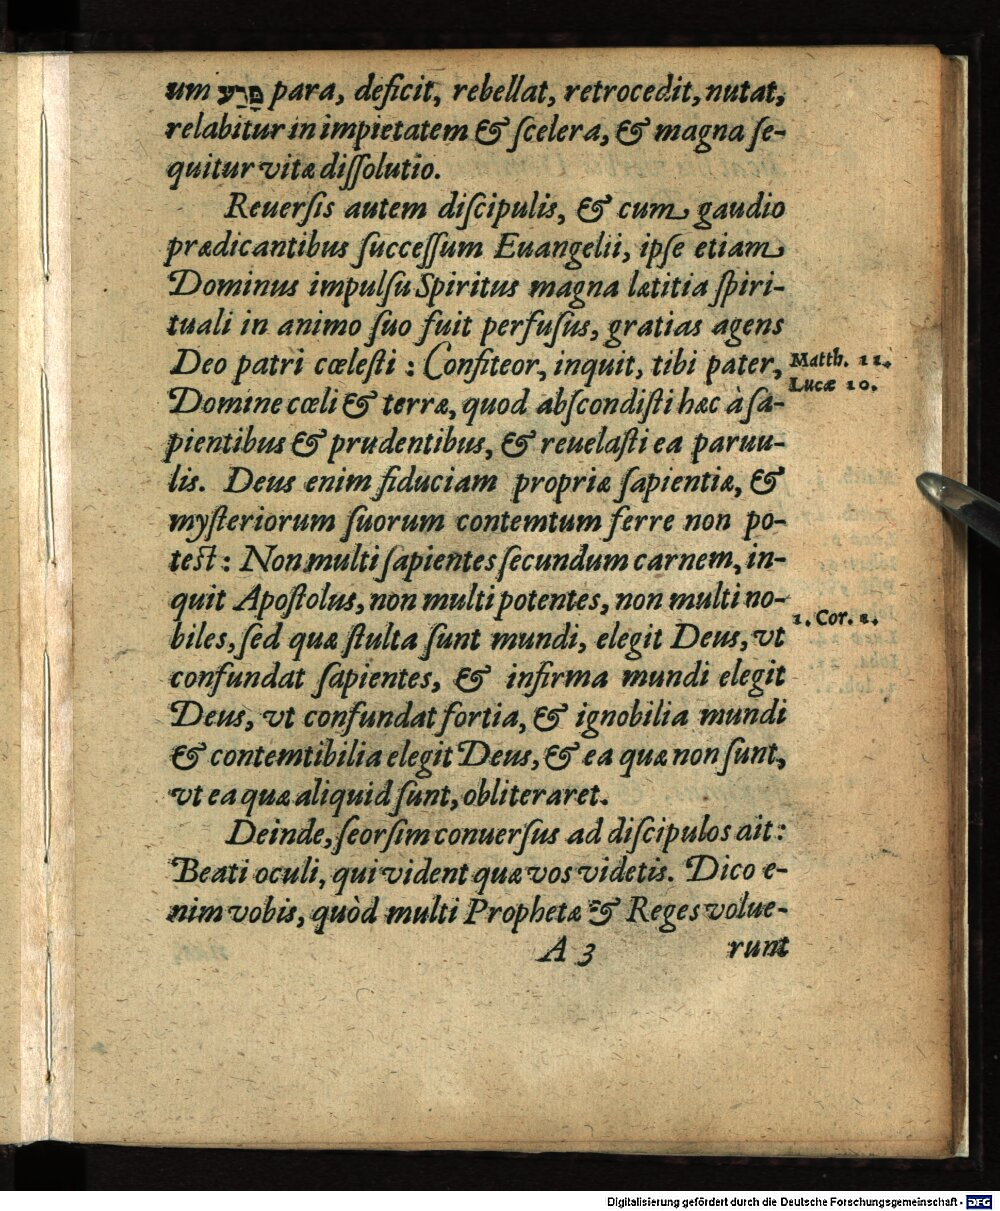 um פָּרַע para, deficit, rebellat, retrocedit, nutat,
relabitur in impietatem & ſcelera, & magna ſe-
quitur vitæ diſſolutio.
Reuerſis autem diſcipulis, & cum gaudio
prædicantibus ſucceſſum Euangelii, ipſe etiam
Dominus impulſu Spiritus magna lætitia ſpiri-
tuali in animo ſuo fuit perfuſus, gratias agens
Deo patri cœleſti : Confiteor, inquit, tibi pater,
Matth. 11.
Lucæ 10.
Domine cœli & terræ, quod abſcondiſti hæc à ſa-
pientibus & prudentibus, & reuelaſti ea paruu-
lis. Deus enim fiduciam propriæ ſapientiæ, &
myſteriorum ſuorum contemtum ferre non po-
teſt : Non multi ſapientes ſecundum carnem, in-
quit Apoſtolus, non multi potentes, non multi no-
1. Cor. 1.
biles, ſed quæ ſtulta ſunt mundi, elegit Deus, vt
confundat ſapientes, & infirma mundi elegit
Deus, vt confundat fortia, & ignobilia mundi
& contemtibilia elegit Deus, & ea quæ non ſunt,
vt ea quæ aliquid ſunt, obliteraret.
Deinde, ſeorſim conuerſus ad diſcipulos ait :
Beati oculi, qui vident quæ vos videtis. Dico e-
nim vobis, quòd multi Prophetæ & Reges volue-
A 3 runt
Digitalisierung gefördert durch die Deutsche Forschungsgemeinschaft - DFG